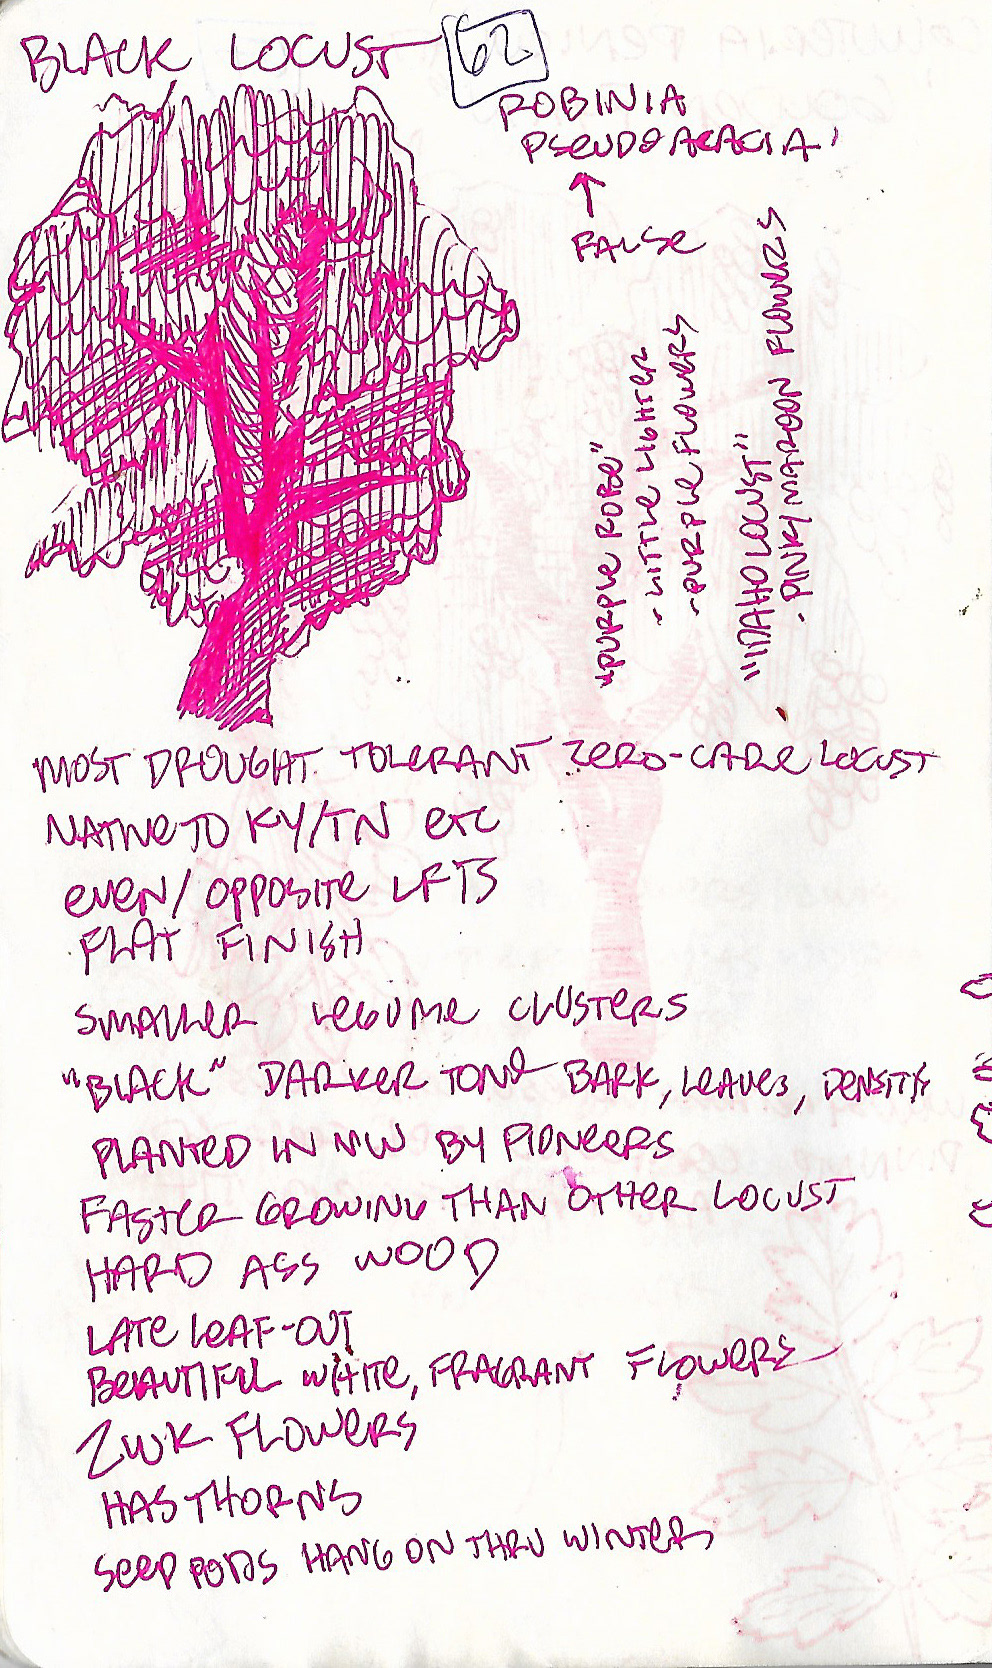 BLACK LOCUST
62
ROBINIA
PSEUDOACACIA'
↑
FALSE
"PURPLE ROBE"
- LITTLE LIGHTER
- PURPLE FLOWERS
"IDAHO LOCUST"
- PINK/MAROON FLOWERS
MOST DROUGHT TOLERANT ZERO-CARE LOCUST
NATIVE TO KY/TN ETC
EVEN/OPPOSITE LFTS
FLAT FINISH
SMALLER LEGUME CLUSTERS
"BLACK" DARKER TONE BARK, LEAVES, DENSITY
PLANTED IN NW BY PIONEERS
FASTER GROWING THAN OTHER LOCUST
HARD ASS WOOD
LATE LEAF-OUT
BEAUTIFUL WHITE, FRAGRANT FLOWERS
2WK FLOWERS
HAS THORNS
SEED PODS HANG ON THRU WINTER